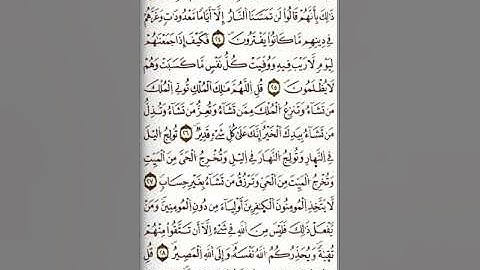 ذَٰلِكَ بِأَنَّهُمْ قَالُوا۟ لَن تَمَسَّنَا ٱلنَّارُ إِلَّآ أَيَّامًا مَّعْدُودَٰتٍ وَغَرَّهُمْ
فِى دِينِهِم مَّا كَانُوا۟ يَفْتَرُونَ ٢٤ فَكَيْفَ إِذَا جَمَعْنَٰهُمْ
لِيَوْمٍ لَّا رَيْبَ فِيهِ وَوُفِّيَتْ كُلُّ نَفْسٍ مَّا كَسَبَتْ وَهُمْ
لَا يُظْلَمُونَ ٢٥ قُلِ ٱللَّهُمَّ مَٰلِكَ ٱلْمُلْكِ تُؤْتِى ٱلْمُلْكَ
مَن تَشَآءُ وَتَنزِعُ ٱلْمُلْكَ مِمَّن تَشَآءُ وَتُعِزُّ مَن تَشَآءُ وَتُذِلُّ
مَن تَشَآءُ بِيَدِكَ ٱلْخَيْرُ إِنَّكَ عَلَىٰ كُلِّ شَىْءٍ قَدِيرٌ ٢٦ تُولِجُ ٱلَّيْلَ
فِى ٱلنَّهَارِ وَتُولِجُ ٱلنَّهَارَ فِى ٱلَّيْلِ وَتُخْرِجُ ٱلْحَىَّ مِنَ ٱلْمَيِّتِ
وَتُخْرِجُ ٱلْمَيِّتَ مِنَ ٱلْحَىِّ وَتَرْزُقُ مَن تَشَآءُ بِغَيْرِ حِسَابٍ ٢٧
لَّا يَتَّخِذِ ٱلْمُؤْمِنُونَ ٱلْكَٰفِرِينَ أَوْلِيَآءَ مِن دُونِ ٱلْمُؤْمِنِينَ وَمَن
يَفْعَلْ ذَٰلِكَ فَلَيْسَ مِنَ ٱللَّهِ فِى شَىْءٍ إِلَّآ أَن تَتَّقُوا۟ مِنْهُمْ
تُقَىٰةً وَيُحَذِّرُكُمُ ٱللَّهُ نَفْسَهُۥ وَإِلَى ٱللَّهِ ٱلْمَصِيرُ ٢٨ قُلْ